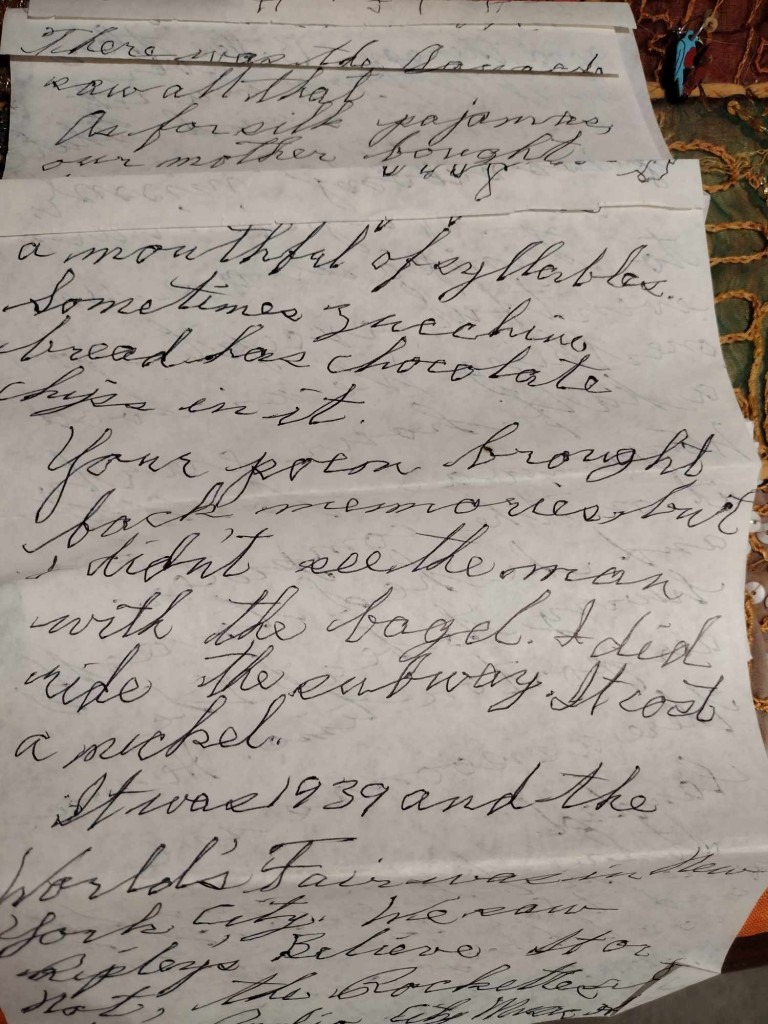 There was the
saw all that.
As for silk pajamas,
our mother bought
a mouthful of syllables.
Sometimes zucchini
bread has chocolate
chips in it.
Your poem brought
back memories, but
I didn't see the man
with the bagel. I did
ride the subway. It cost
a nickel.
It was 1939 and the
World's Fair was in New
York City. We saw
Ripley's Believe It or
Not, the Rockettes
Radio City Music